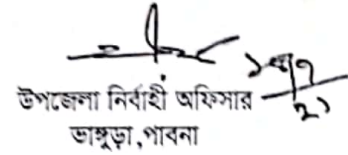 উপজেলা নির্বাহী অফিসার
ভাঙ্গুড়া,পাবনা